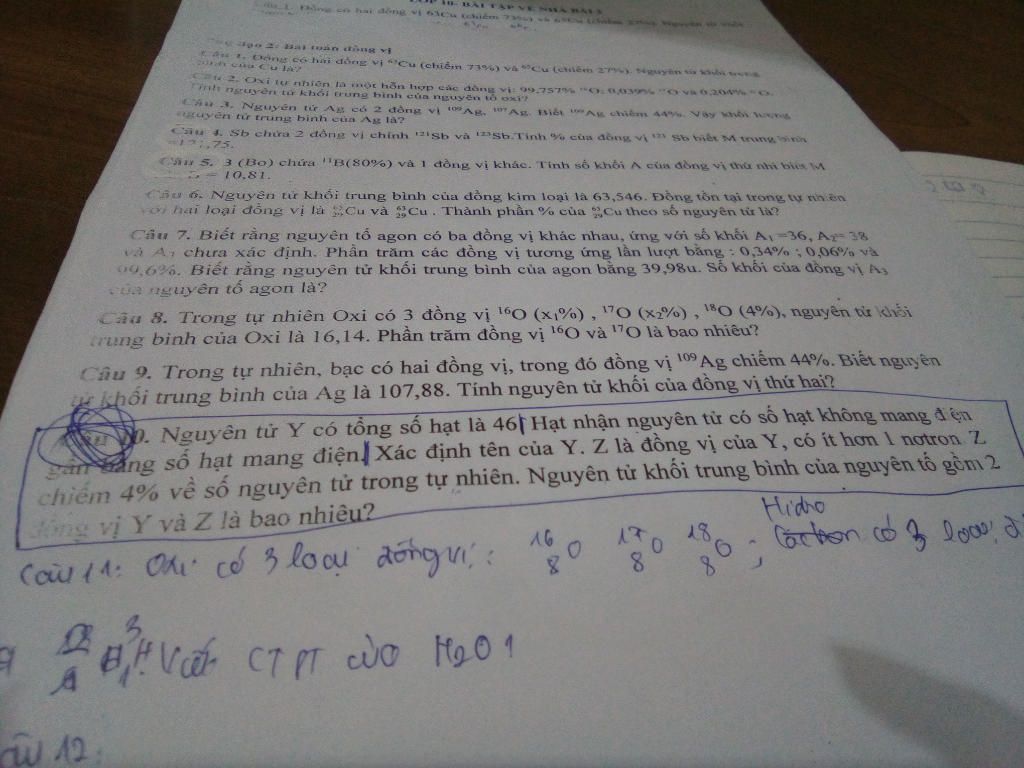 LỚP 10- BÀI TẬP VỀ NHÀ BÀI 3
Câu 1. Đồng có hai đồng vị 63Cu (chiếm 73%) và 65Cu (chiếm 27%). Nguyên tử khối
2: Bài toán đồng vị
Câu 1. Đồng có hai đồng vị ⁶³Cu (chiếm 73%) và ⁶⁵Cu (chiếm 27%). Nguyên tử khối trung
bình của Cu là?
Câu 2. Oxi tự nhiên là một hỗn hợp các đồng vị: 99,757% ¹⁶O; 0,039% ¹⁷O và 0,204% ¹⁸O.
Tính nguyên tử khối trung bình của nguyên tố oxi?
Câu 3. Nguyên tử Ag có 2 đồng vị ¹⁰⁹Ag, ¹⁰⁷Ag. Biết ¹⁰⁹Ag chiếm 44%. Vậy khối lượng
nguyên tử trung bình của Ag là?
Câu 4. Sb chứa 2 đồng vị chính ¹²¹Sb và ¹²³Sb.Tính % của đồng vị ¹²¹ Sb biết M trung bình
=121,75.
Câu 5. 3 (Bo) chứa ¹¹B(80%) và 1 đồng vị khác. Tính số khối A của đồng vị thứ nhì biết M
= 10,81.
Câu 6. Nguyên tử khối trung bình của đồng kim loại là 63,546. Đồng tồn tại trong tự nhiên
với hai loại đồng vị là Cu và ⁶³₂₉Cu . Thành phần % của ⁶³₂₉Cu theo số nguyên tử là?
Câu 7. Biết rằng nguyên tố agon có ba đồng vị khác nhau, ứng với số khối A₁ =36, A₂= 38
và A₃ chưa xác định. Phần trăm các đồng vị tương ứng lần lượt bằng : 0,34% ; 0,06% và
99,6%. Biết rằng nguyên tử khối trung bình của agon bằng 39,98u. Số khối của đồng vị A₃
của nguyên tố agon là?
Câu 8. Trong tự nhiên Oxi có 3 đồng vị ¹⁶O (x₁%) , ¹⁷O (x₂%) , ¹⁸O (4%), nguyên tử khối
trung bình của Oxi là 16,14. Phần trăm đồng vị ¹⁶O và ¹⁷O là bao nhiêu?
Câu 9. Trong tự nhiên, bạc có hai đồng vị, trong đó đồng vị ¹⁰⁹Ag chiếm 44%. Biết nguyên
tử khối trung bình của Ag là 107,88. Tính nguyên tử khối của đồng vị thứ hai?
Câu 10. Nguyên tử Y có tổng số hạt là 46. Hạt nhận nguyên tử có số hạt không mang điện
gần bằng số hạt mang điện. Xác định tên của Y. Z là đồng vị của Y, có ít hơn 1 nơtron. Z
chiếm 4% về số nguyên tử trong tự nhiên. Nguyên tử khối trung bình của nguyên tố gồm 2
đồng vị Y và Z là bao nhiêu?
Câu 11: Oxi có 3 loại đồng vị: ¹⁶₈O ¹⁷₈O ¹⁸₈O ; Hidro có 3 loại
³₁H. Viết CTPT của H2O1
Câu 12: